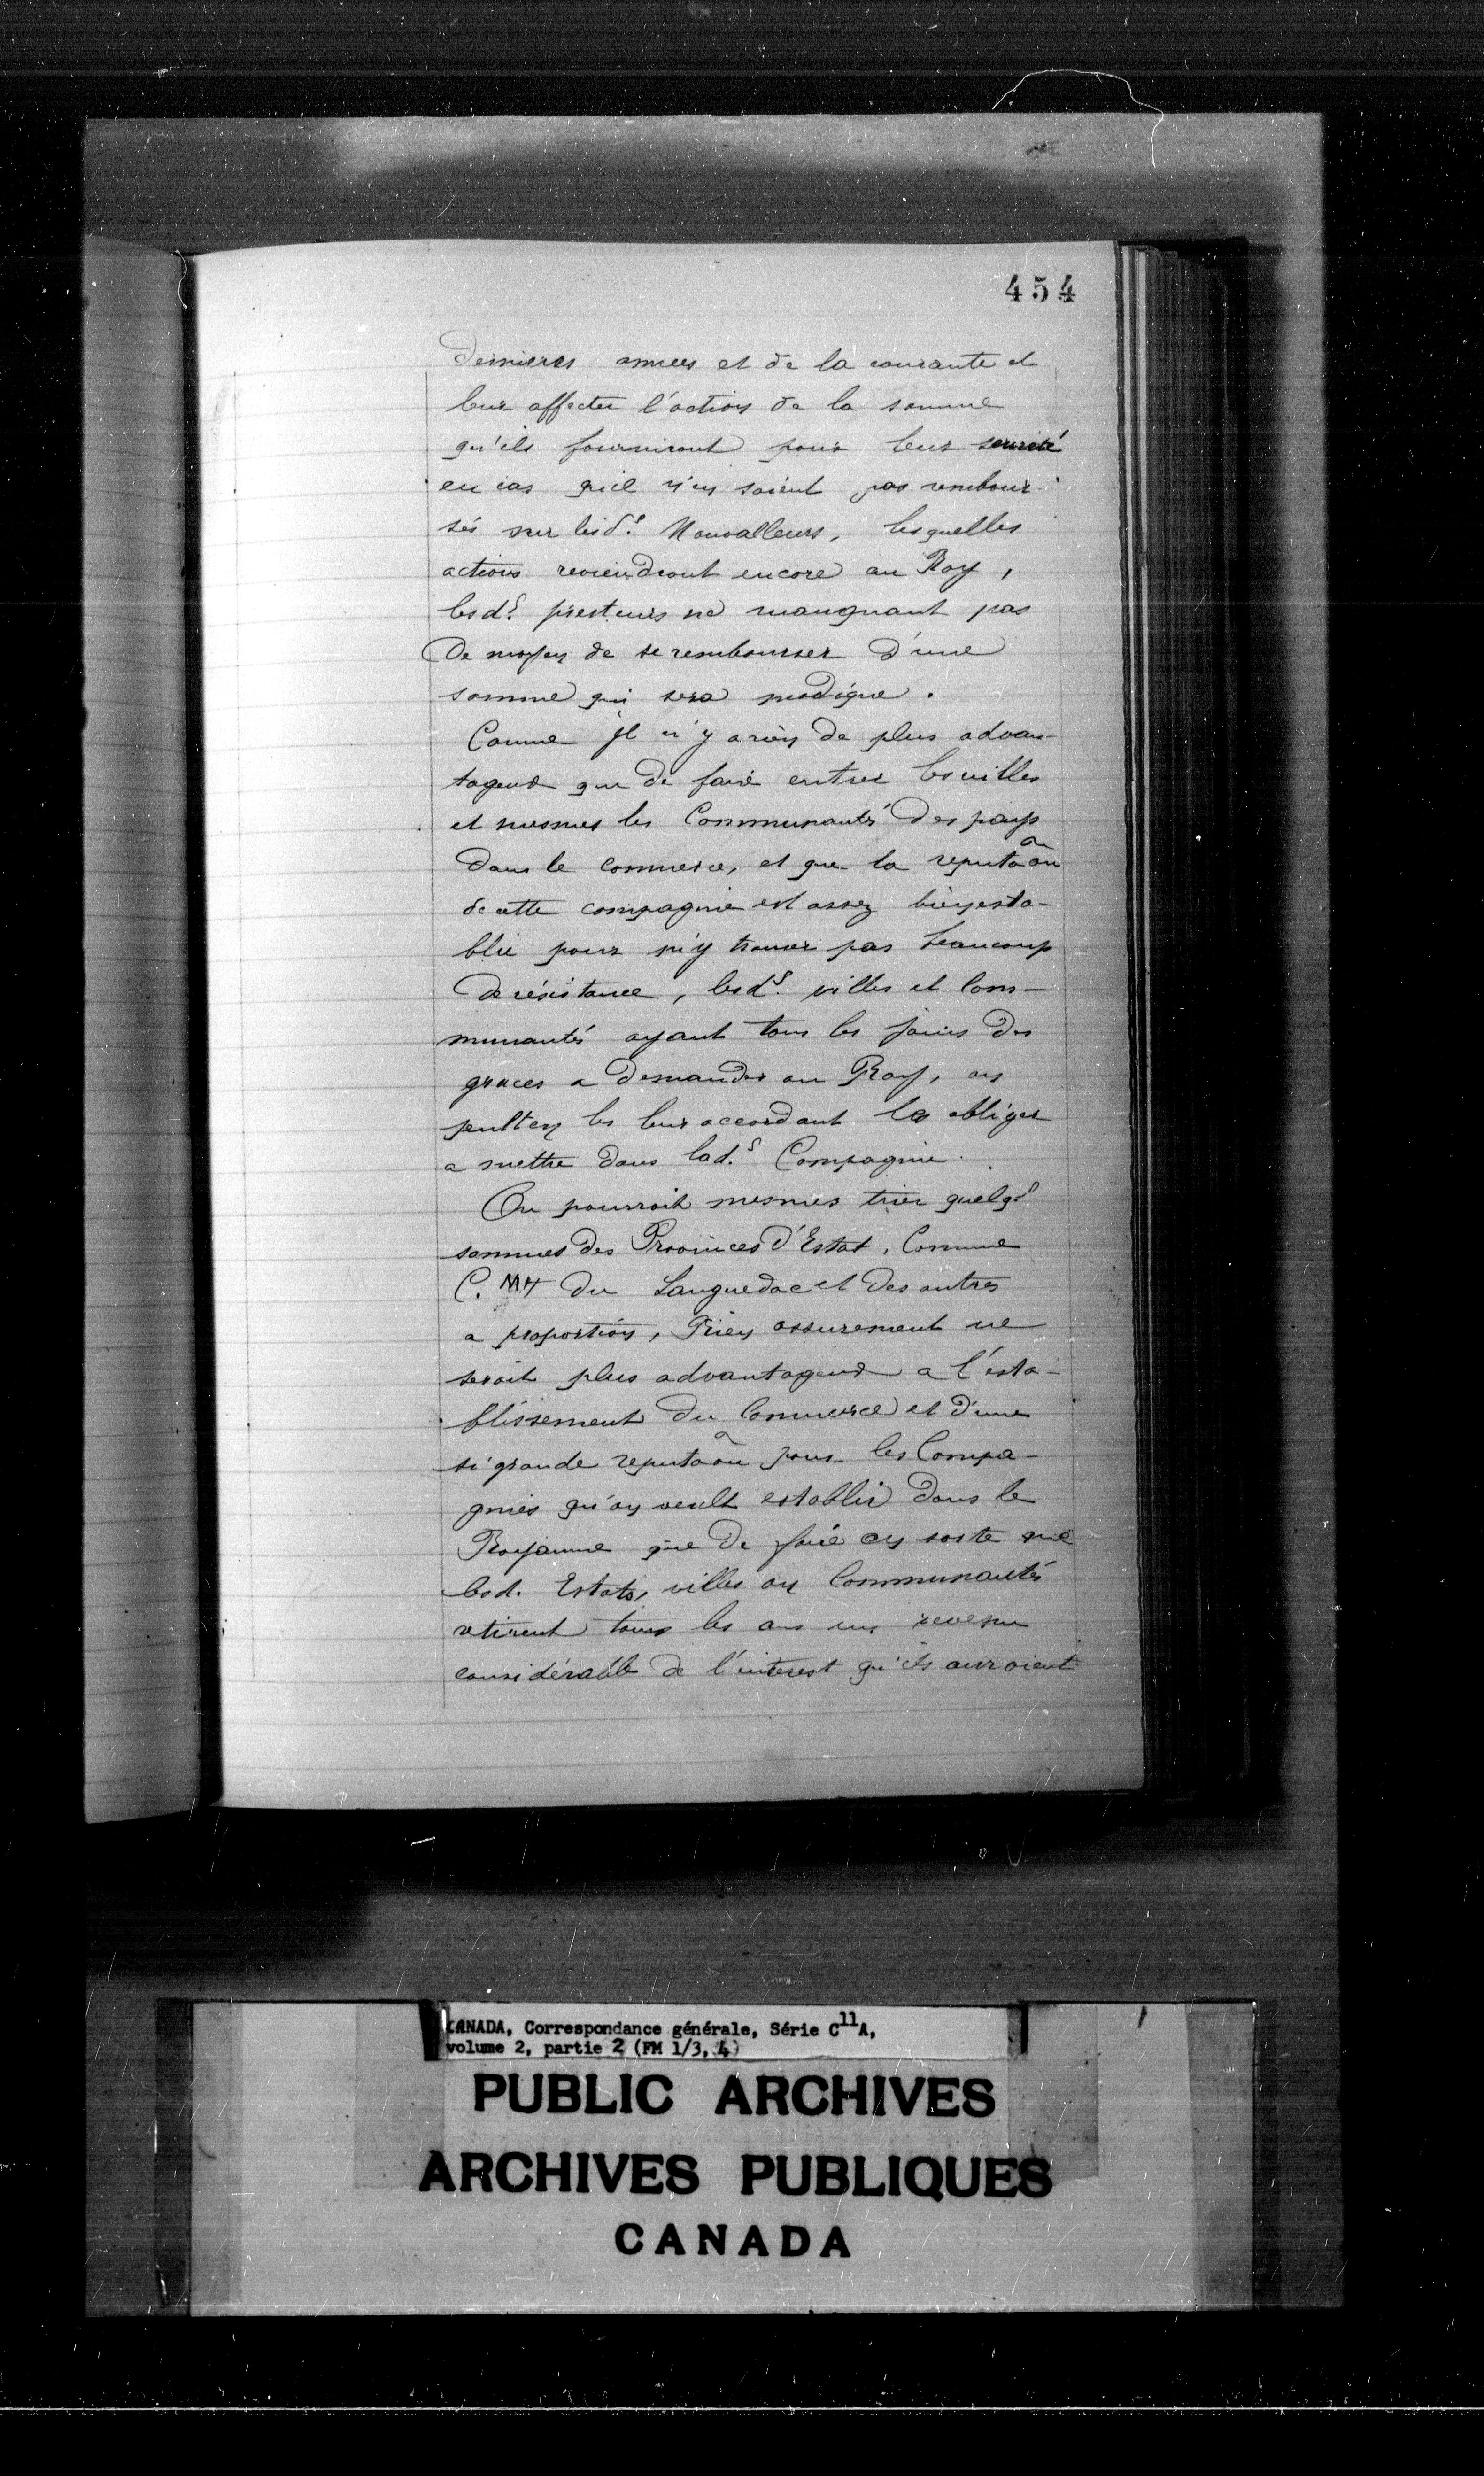 454
dernieres années et de la courante et
leur affecter l'action de la somme
qu'ils fourniront pour leur seureté
en cas qu'il n'en soient pas rembour-
sés sur lesd.s Nonvalleurs, lesquelles
actions reviendront encore au Roy,
lesd.s presteurs ne manquant pas
De moyen de se rembourser d'une
somme qui sera modique.
Comme Jl n'y a rien de plus advan-
tageux que de faire entrer les villes
et mesmes les Communautés des pays
dans le commerce, et que la reputaõn
de cette compagnie est assez bien esta-
blie pour n'y trouver pas beaucoup
de résistance, lesd.s villes et Com-
munautés ayant tous les jours des
graces a demander au Roy, on
peult en les leur accordant les obliger
a mettre dans lad.s Compagnie.
On pourroit mesmes tirer quelq.s
sommes des Provinces d'Estat, Comme
C. du Languedoc et des autres
a proportion, Rien assurement ne
seroit plus advantageux a l'esta-
blissement du Commerce et d'une
si grande reputaõn pour les Compa-
gnies qu'on veult establir dans le
Royaume que de faire en sorte que
lesd. Estats, villes ou Communautés
retirent tous les ans un revenu
considérable de l'interest qu'ils auroient
CANADA, Correspondance générale, Série C11A,
volume 2, partie 2 (FM 1/3, 4)
PUBLIC ARCHIVES
ARCHIVES PUBLIQUES
CANADA